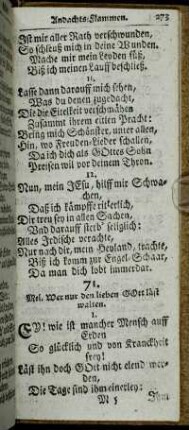 Andachts-Flammen. 273
Ist mir aller Rath verschwunden,
So schleuß mich in deine Wunden.
Mache mir mein Leyden süß,
Biß ich meinen Lauff beschließ.
11.
Lasse dann darauff mich sehen,
Was du denen zugedacht,
Die die Eitelkeit verschmähen
Zusammt ihrem eitlen Pracht:
Bring mich Schönster, unter allen,
Hin, wo Freuden-Lieder schallen,
Da ich dich als GOttes Sohn
Preisen wil vor deinem Thron.
12.
Nun, mein JEsu, hilff mir Schwa-
chen,
Daß ich kämpffe ritterlich,
Dir treu sey in allen Sachen,
Und darauff sterb' seliglich:
Alles Irdische verachte,
Nur nach dir, mein Heyland, trachte,
Biß ich komm zur Engel-Schaar,
Da man dich lobt immerdar.
71.
Mel. Wer nur den lieben GOtt läst
walten.
1.
EY! wie ist mancher Mensch auff
Erden
So glücklich und von Kranckheit
frey!
Läst ihn doch GOtt nicht elend wer-
den,
Die Tage sind ihm einerley:
M 5